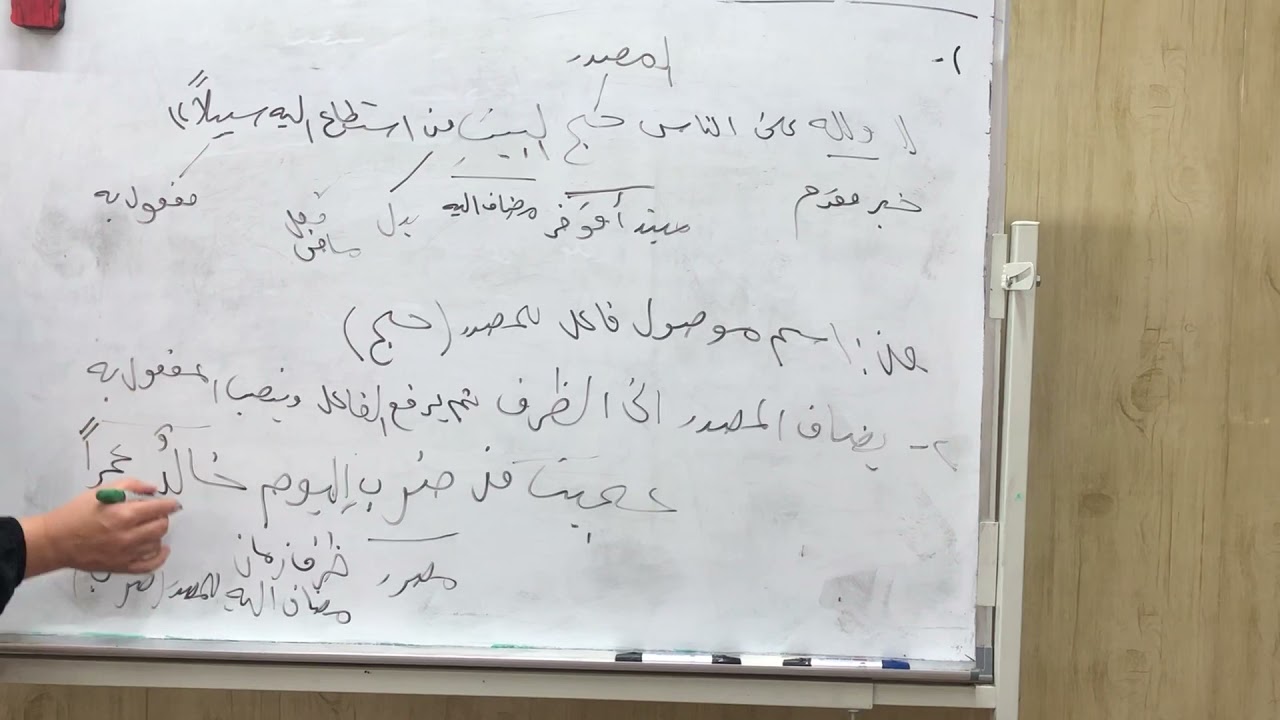 ١- المصدر
(( ولله على الناس حج البيتِ من استطاع اليه سبيلاً ))
خبر مقدم مبتدأ مؤخر مضاف اليه بدل فعل ماضي مفعول به
من: اسم موصول فاعل للمصدر (حج)
٢- يضاف المصدر الى الظرف ثم يرفع الفاعل وينصب المفعول به
عجبت من ضربِ اليوم خالدٌ عمراً
مصدر ظرف زمان
مضاف اليه للمصدر (ضرب